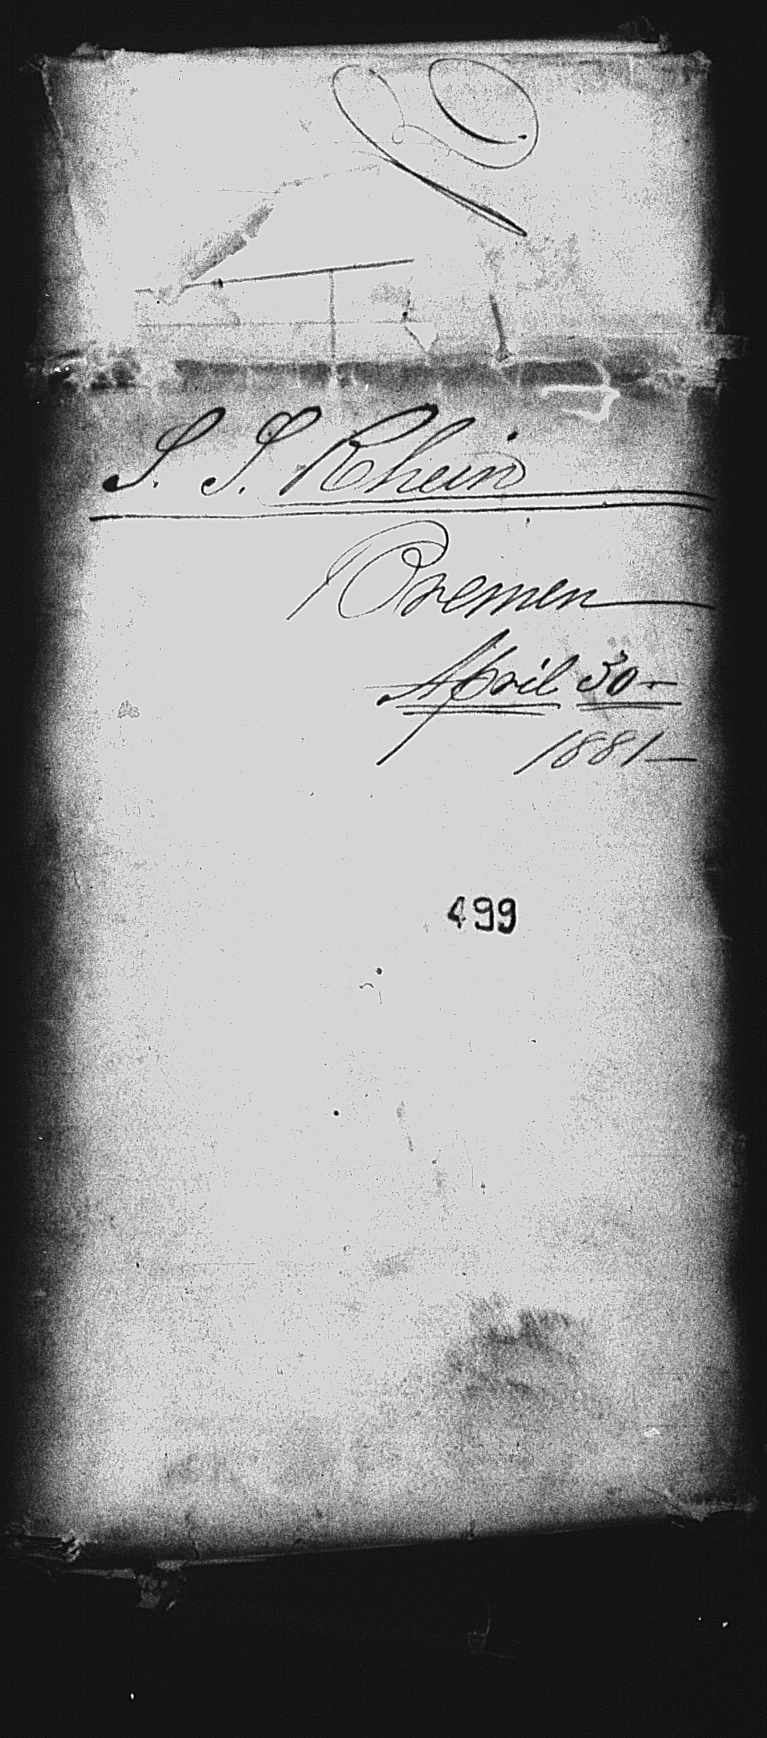 S. S. Rhein
Bremen
April 30
1881
499